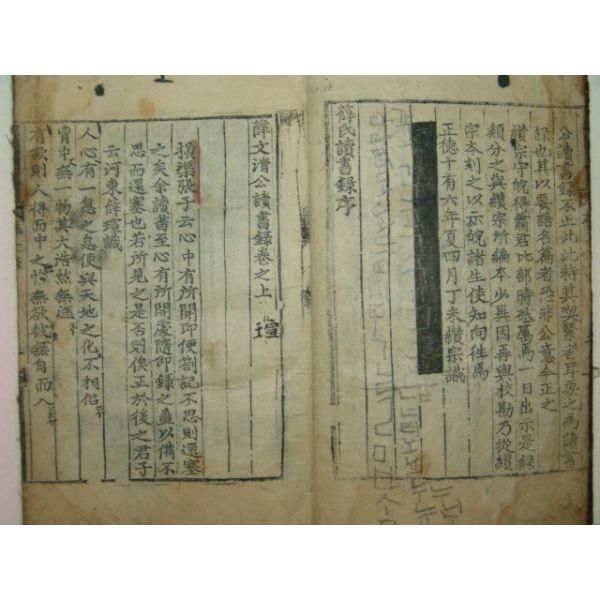 公讀書錄不止此此特其要緊者耳要之爲讀書
錄也其以要語名篇者恐非公意今正之
讚宗守皖得蕭君比部騎
類分之與纘宗所編本少異因再與校勘乃從纘
宗本刻之以示皖諸生使知向往焉
正德十有六年夏四月丁未纘宗識
薛氏讀書錄序
薛文清公讀書錄卷之上
瑄
橫渠張子云心中有所開即便劄記不思則還塞
之矣余讀書至心有所開處隨即錄之蓋以備不
思而還塞也若所見之是否則俟正於後之君子
云河東薛瑄識
人心有一息之怠便與天地之化不相侣
胷中無一物其大浩然無涯
有欲則人得而中之惟無欲彼無自而入